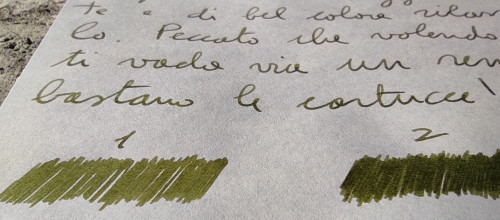 te e di bel colore rilas
lo. Peccato che volendo
ti vada via un ren
bastano le cartucce
1 2